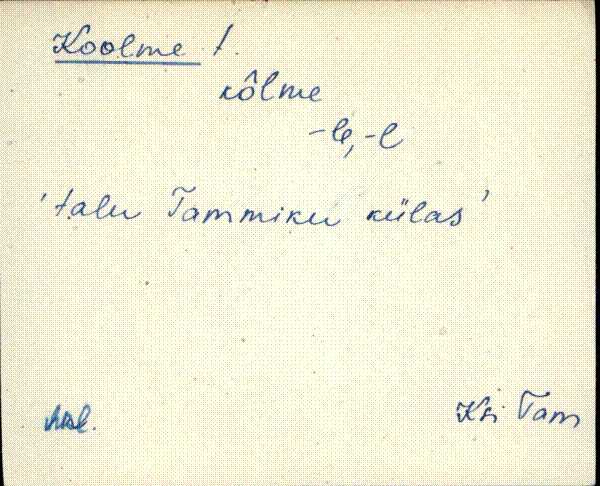 Koolme t.
kôlme
-le, -l
'talu Tammiku külas'
Ksi Tam